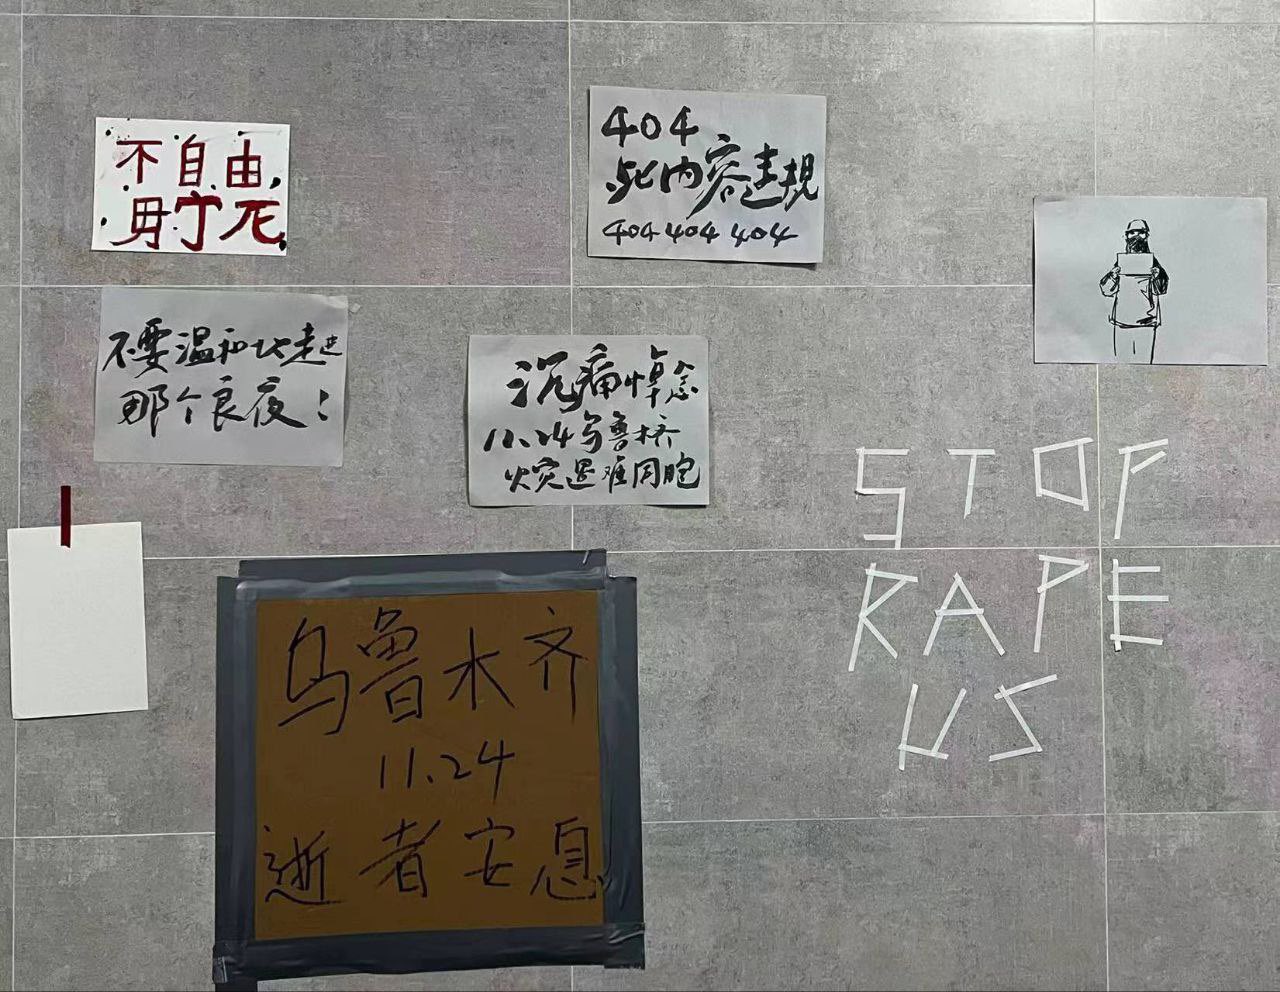 不自由
毋宁死
404
此内容违规
404 404 404
不要温和地走进
那个良夜！
沉痛悼念
11.24乌鲁木齐
火灾遇难同胞
STOP
RAPE
US
乌鲁木齐
11.24
逝者安息